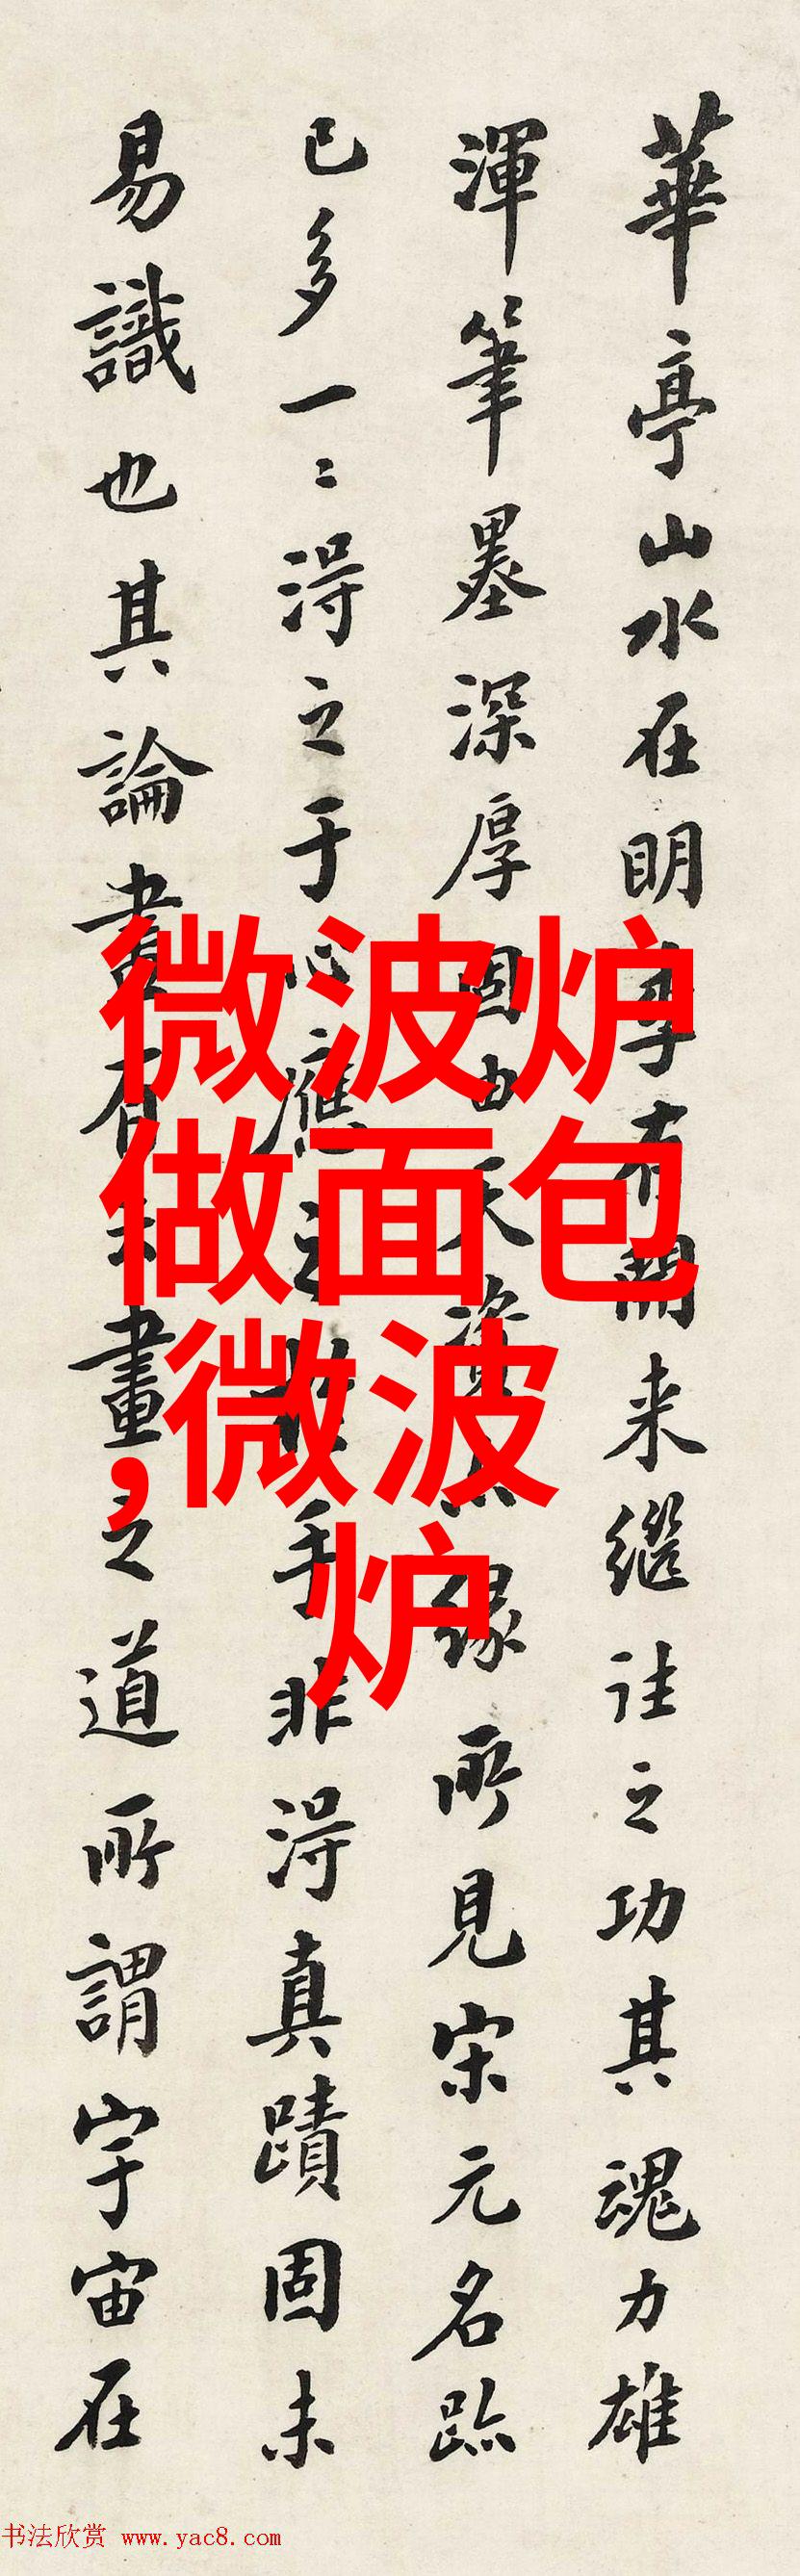 華亭山水在明季有開来繼往之功其魂力雄
渾筆墨深厚固由天資亦緣所見宋元名跡
已多一二得之于心應之於手非得真蹟固未
易識也其論畫有云畫之道所謂宇宙在
微波炉
做面包
,微波
炉
书法欣赏 www.yac8.com